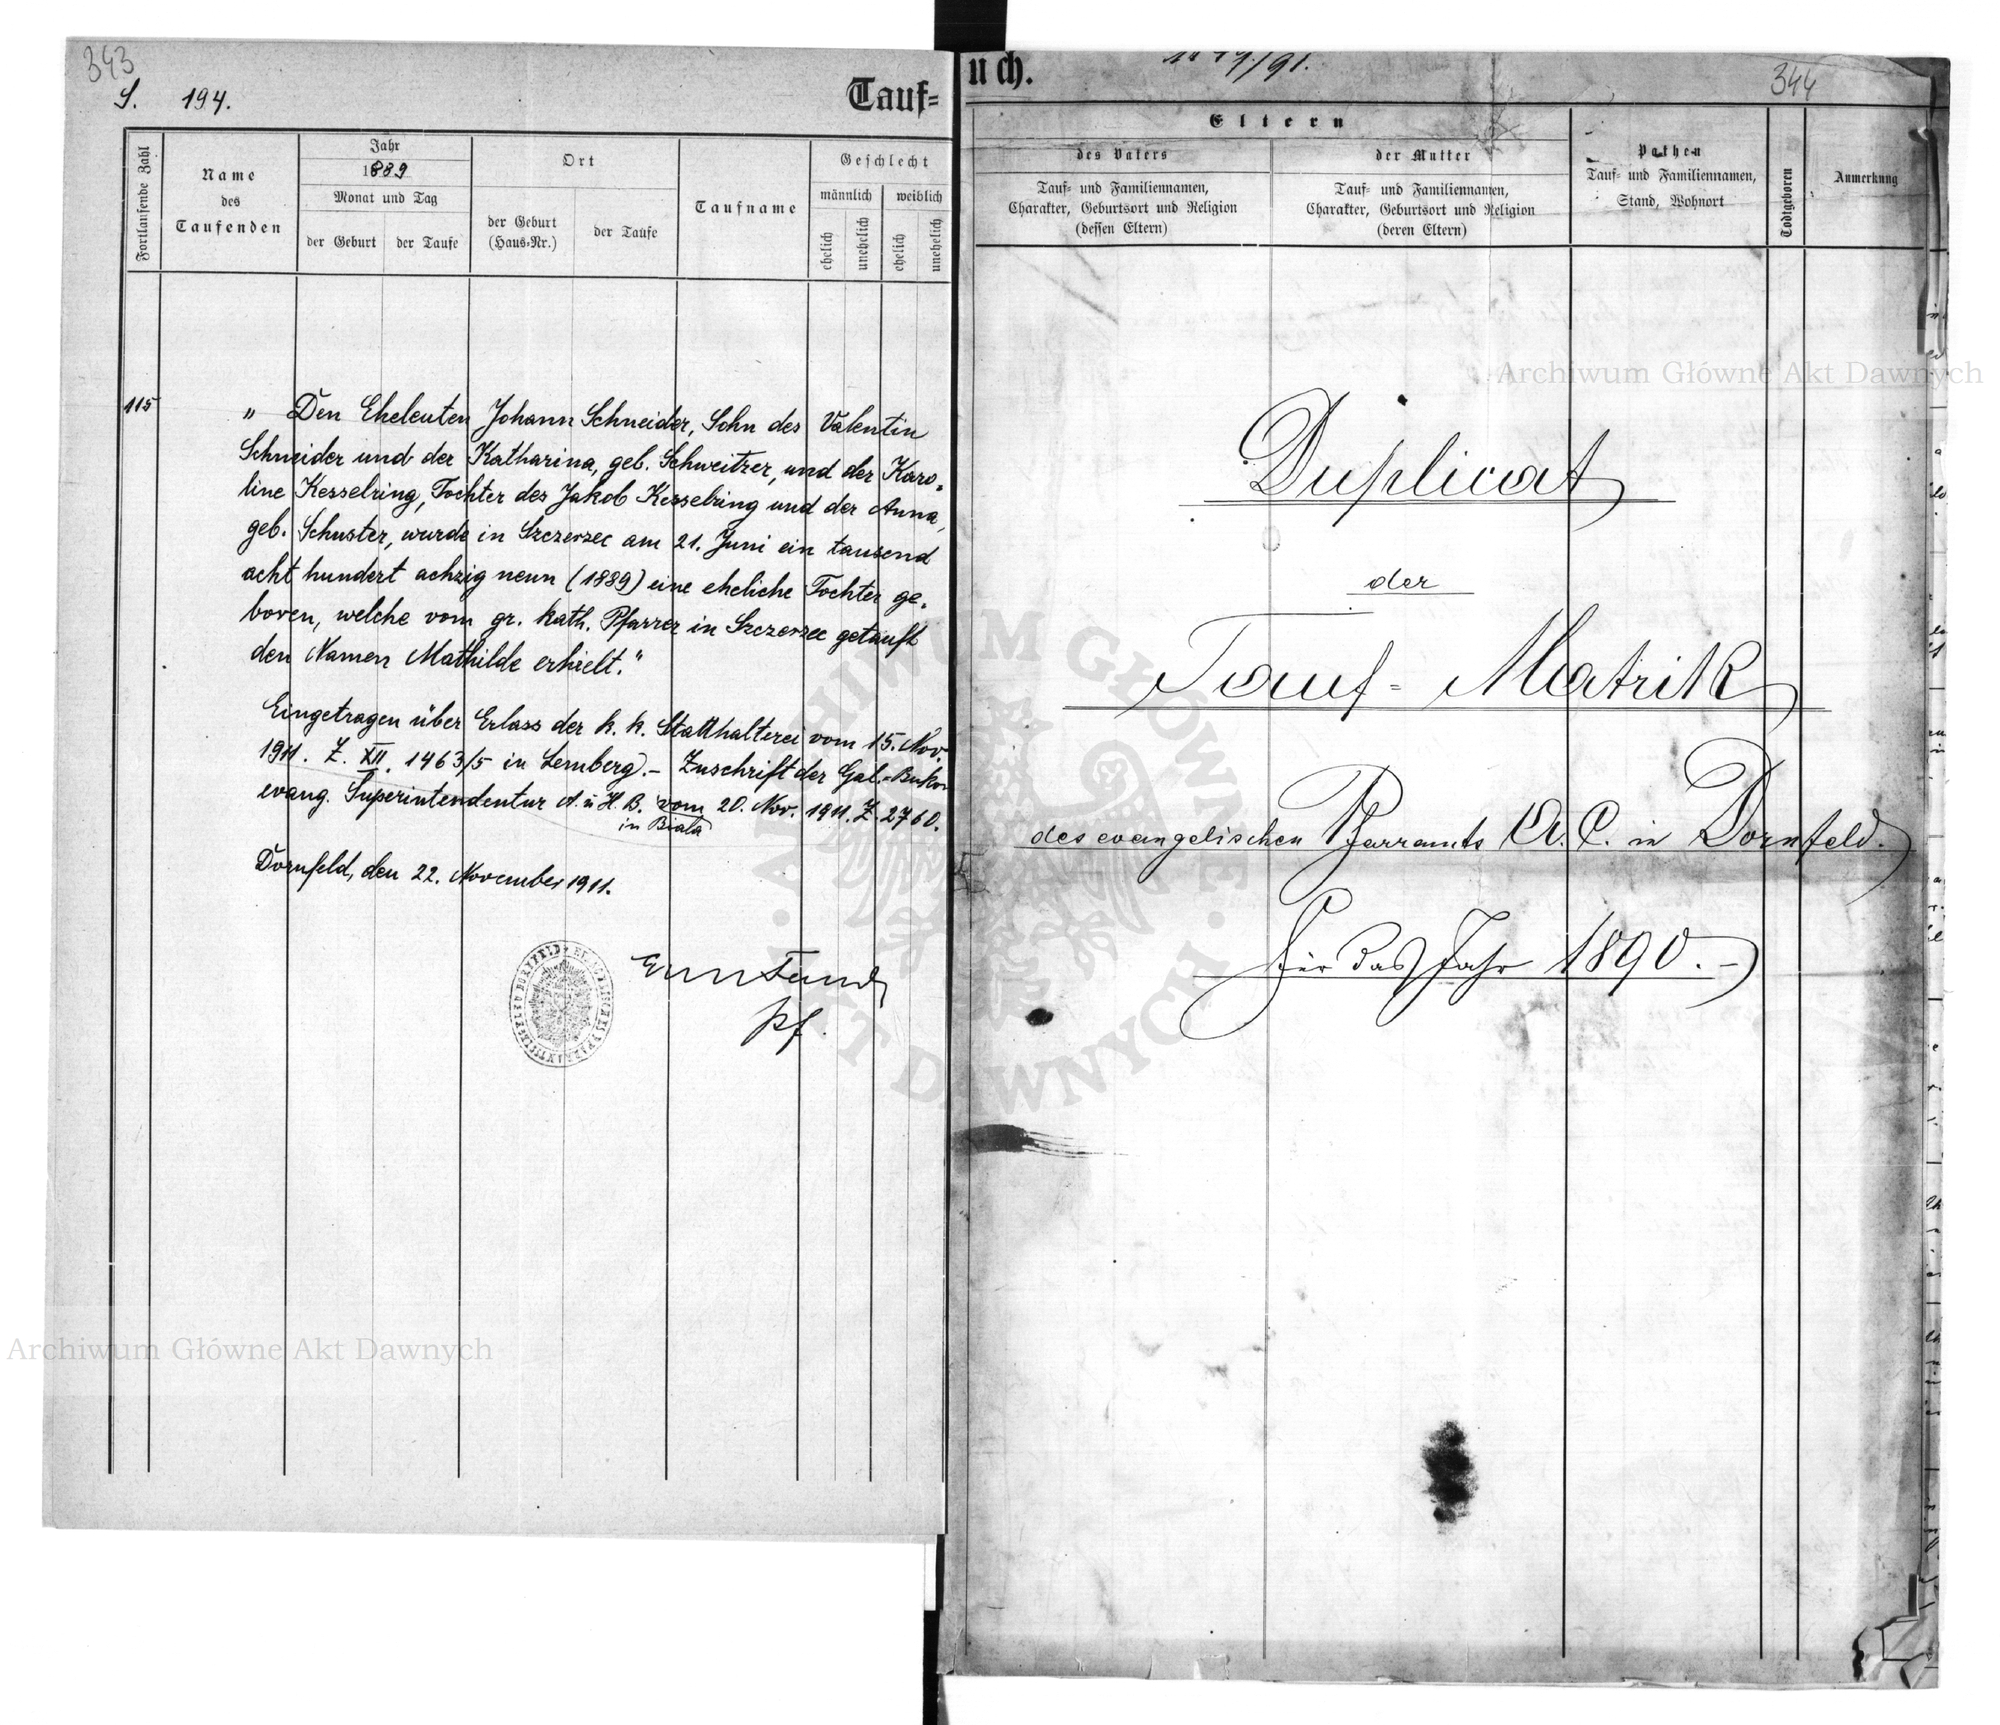 343
S. 194.
Tauf=
Fortlaufende Zahl
Name
des
Taufenden
Jahr
1889
Monat und Tag
der Geburt
der Taufe
Ort
der Geburt
(Haus=Nr.)
der Taufe
Taufname
Geschlecht
männlich
weiblich
ehelich
unehelich
ehelich
unehelich
115
„ Den Eheleuten Johann Schneider, Sohn des Valentin
Schneider und der Katharina, geb. Schweitzer, und der Karo=
line Kesselring, Tochter des Jakob Kesselring und der Anna,
geb. Schuster, wurde in Szczerzec am 21. Juni ein tausend
acht hundert achzig neun (1889) eine eheliche Tochter ge=
boren, welche vom gr. kath. Pfarrer in Szczerzec getauft
den Namen Mathilde erhielt.“
Eingetragen über Erlass der k. k. Statthalterei vom 15. Nov.
1911. Z. XII. 1463/5 in Lemberg). – Zuschrift der Gal.=Bukow
evang. Superintendentur A. u H. B. vom 20. Nov. 1911. Z. 2760.
in Biala
Dornfeld, den 22. November 1911.
Pf.
uch.
344
Eltern
des Vaters
Tauf= und Familiennamen,
Charakter, Geburtsort und Religion
(dessen Eltern)
der Mutter
Tauf= und Familiennamen,
Charakter, Geburtsort und Religion
(deren Eltern)
Pathen
Tauf= und Familiennamen,
Stand, Wohnort
Todtgeboren
Anmerkung
Duplicat
der
Tauf= Matrik
des evangelischen Pfarramts A. C. in Dornfeld.
Für das Jahr 1890. –
Archiwum Główne Akt Dawnych
Archiwum Główne Akt Dawnych
ARCHIWUM GŁÓWNE AKT DAWNYCH